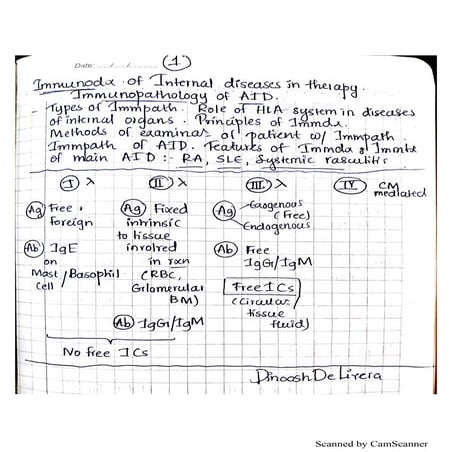 Date: ....../....../............
1
Immunodx of Internal diseases in therapy.
Immunopathology of AID.
Types of Immpath. Role of HLA system in diseases
of internal organs. Principles of Immdx.
Methods of examinas of patient w/ Immpath.
Immpath of AID. Features of Immdx & Immtx
of main AID :- RA, SLE, Systemic vasculitis
I λ
II λ
III λ
IV CM
mediated
Ag Free,
foreign
Ab IgE
on
Mast / Basophil
cell
Ag Fixed
intrinsic
to tissue
involved
in rxn
(RBC,
Glomerular
BM)
Ab IgG/IgM
Ag Exogenous
(free)
Endogenous
Ab Free
IgG/IgM
Free ICs
(circular/
tissue
fluid)
No free ICs
Dinoosh De Livera
Scanned by CamScanner